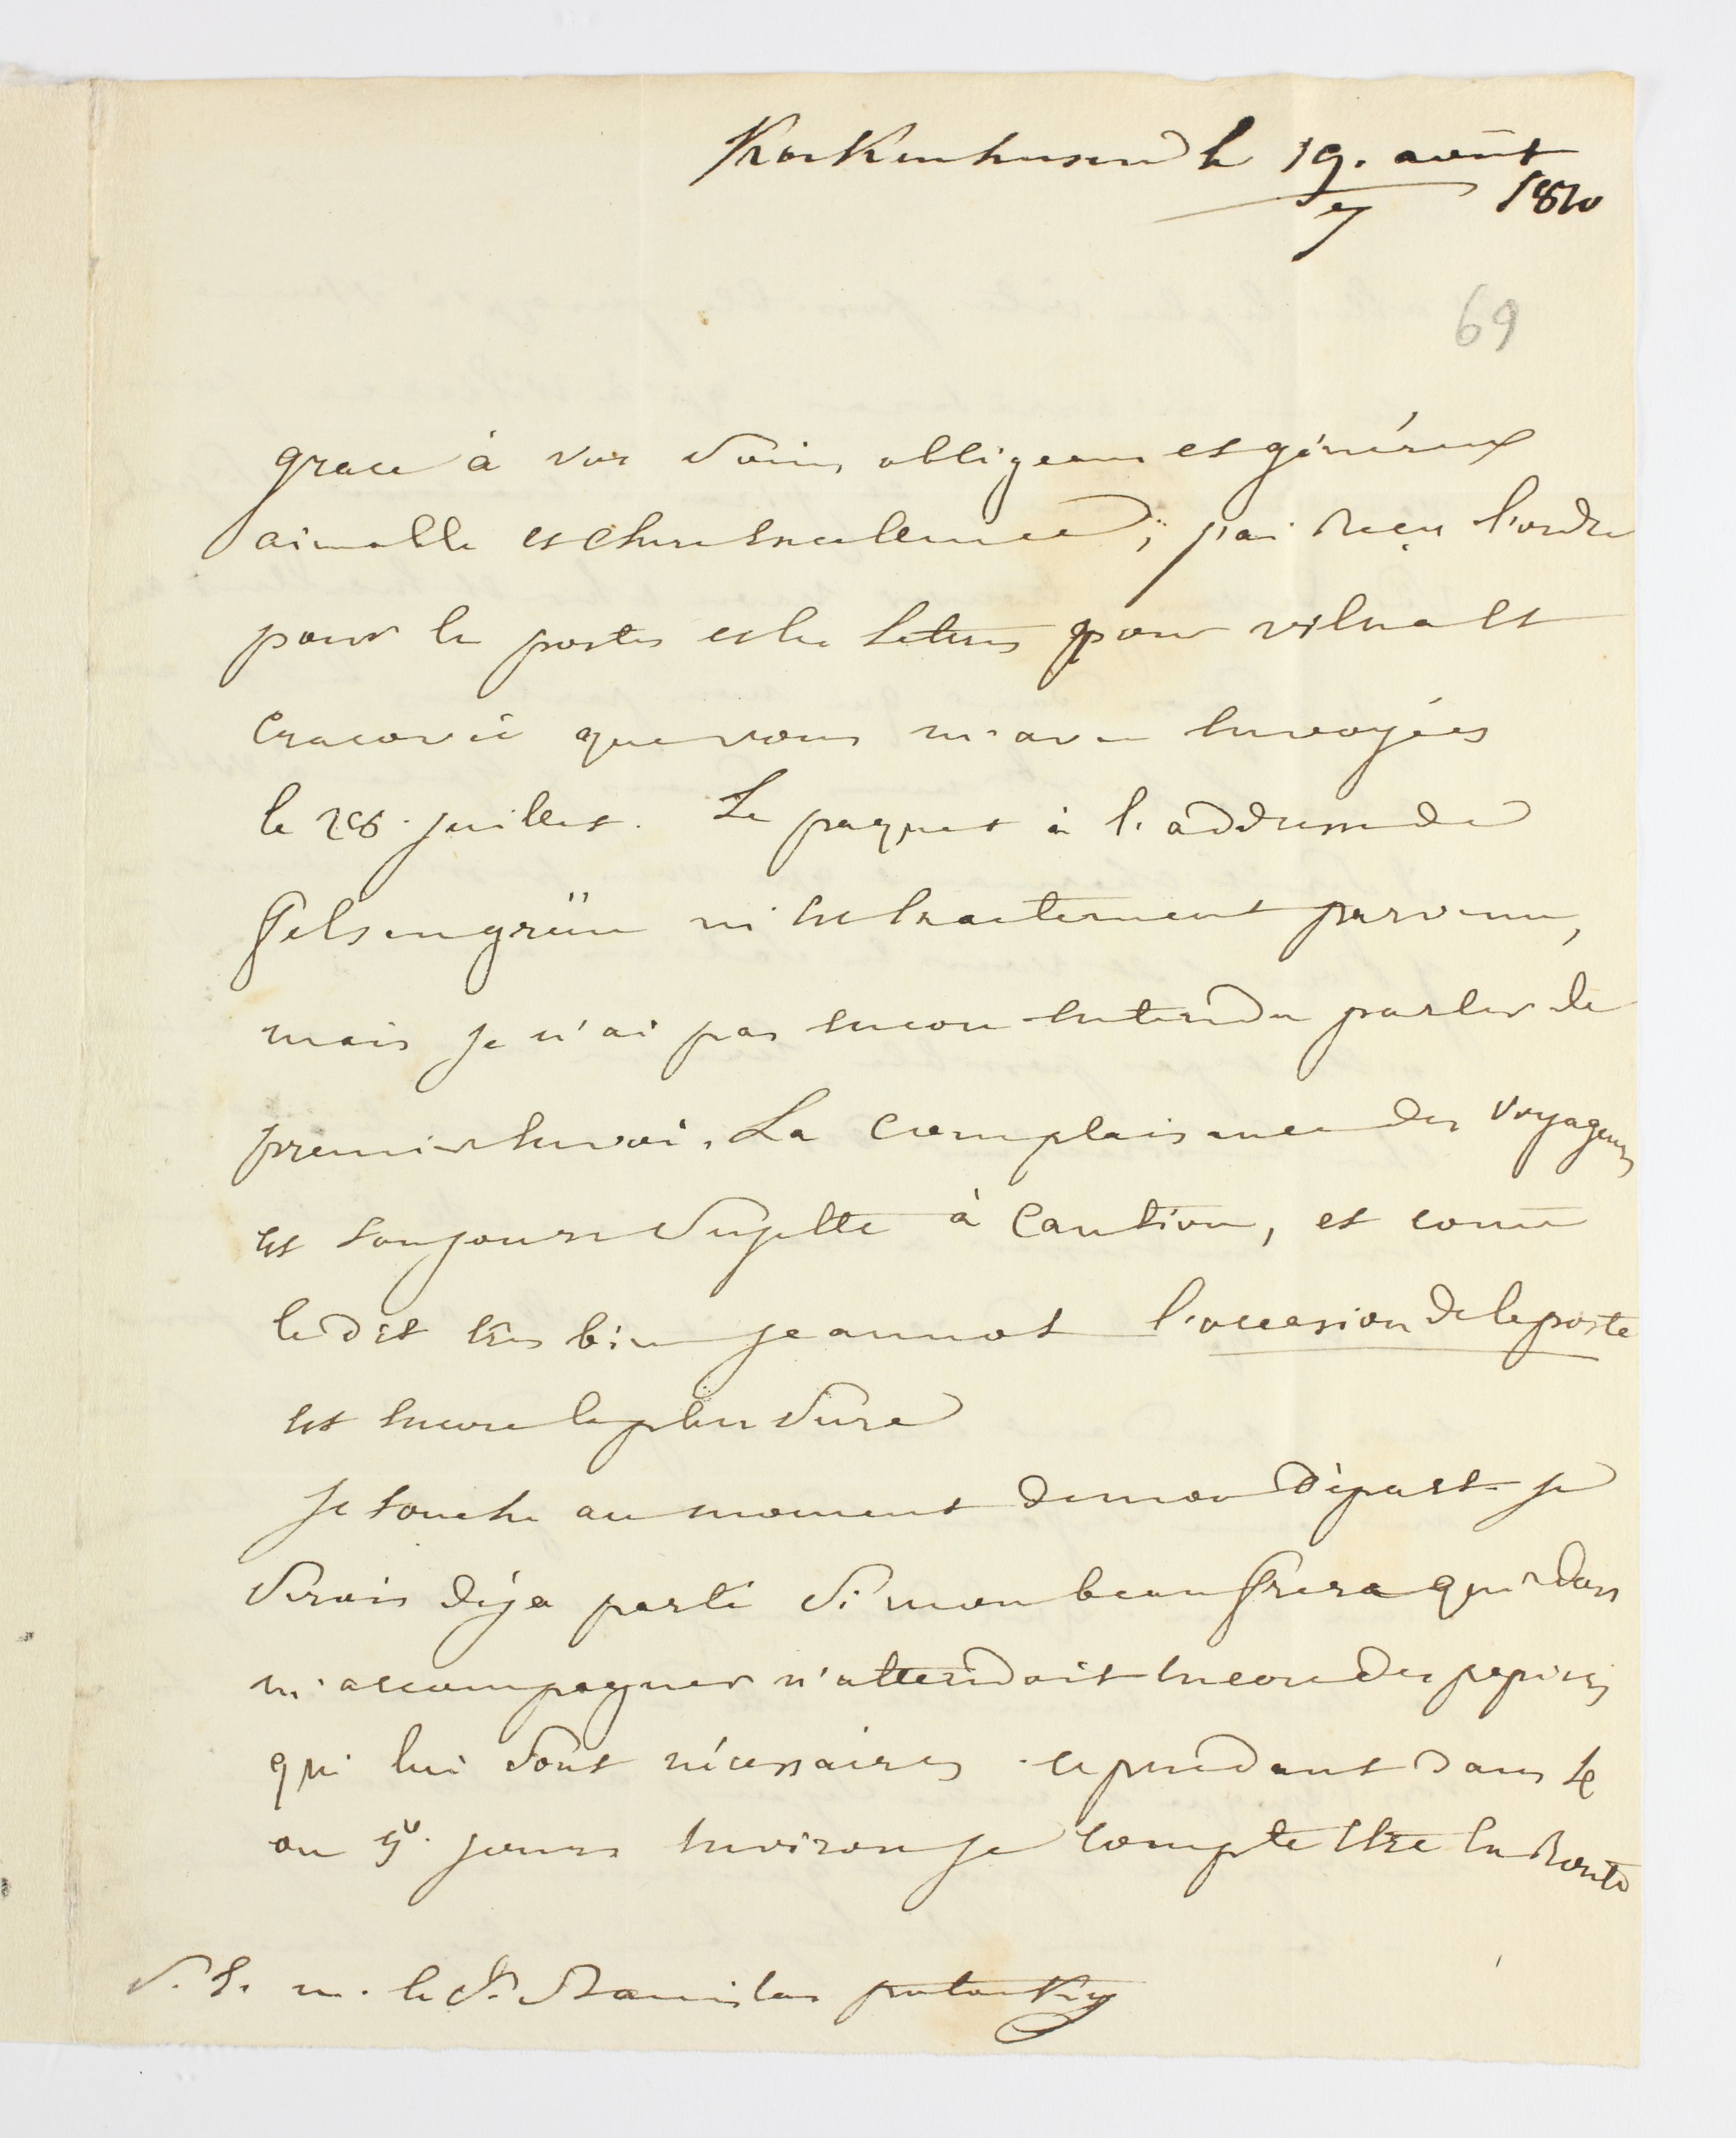 Kokenhusen le 19. août
7
1810
69
grace à vos soins obligeans et généreux
aimable et chere excellence, j'ai reçu l'ordre
pour les postes et les lettres pour vilna et
Cracovie que vous m'avez envoyées
le 28. juillet. Le paquet à l'addresse de
Felsengrün m'est exactement parvenu,
mais je n'ai pas encore entendu parler de
premier envoi. La complaisance des voyageurs
est toujours sujette à Caution, et come
le dit très bien jeannot l'occasion de la poste
est encore la plus sure
Je touche au moment de mon départ je
serais déja parti si mon beau frere qui doit
m'accompagner n'attendait encore des papiers
qui lui sont nécessaires cependant dans 4
ou 5 jours environ je compte etre en Route
S. E. m. le Stanislas potocky